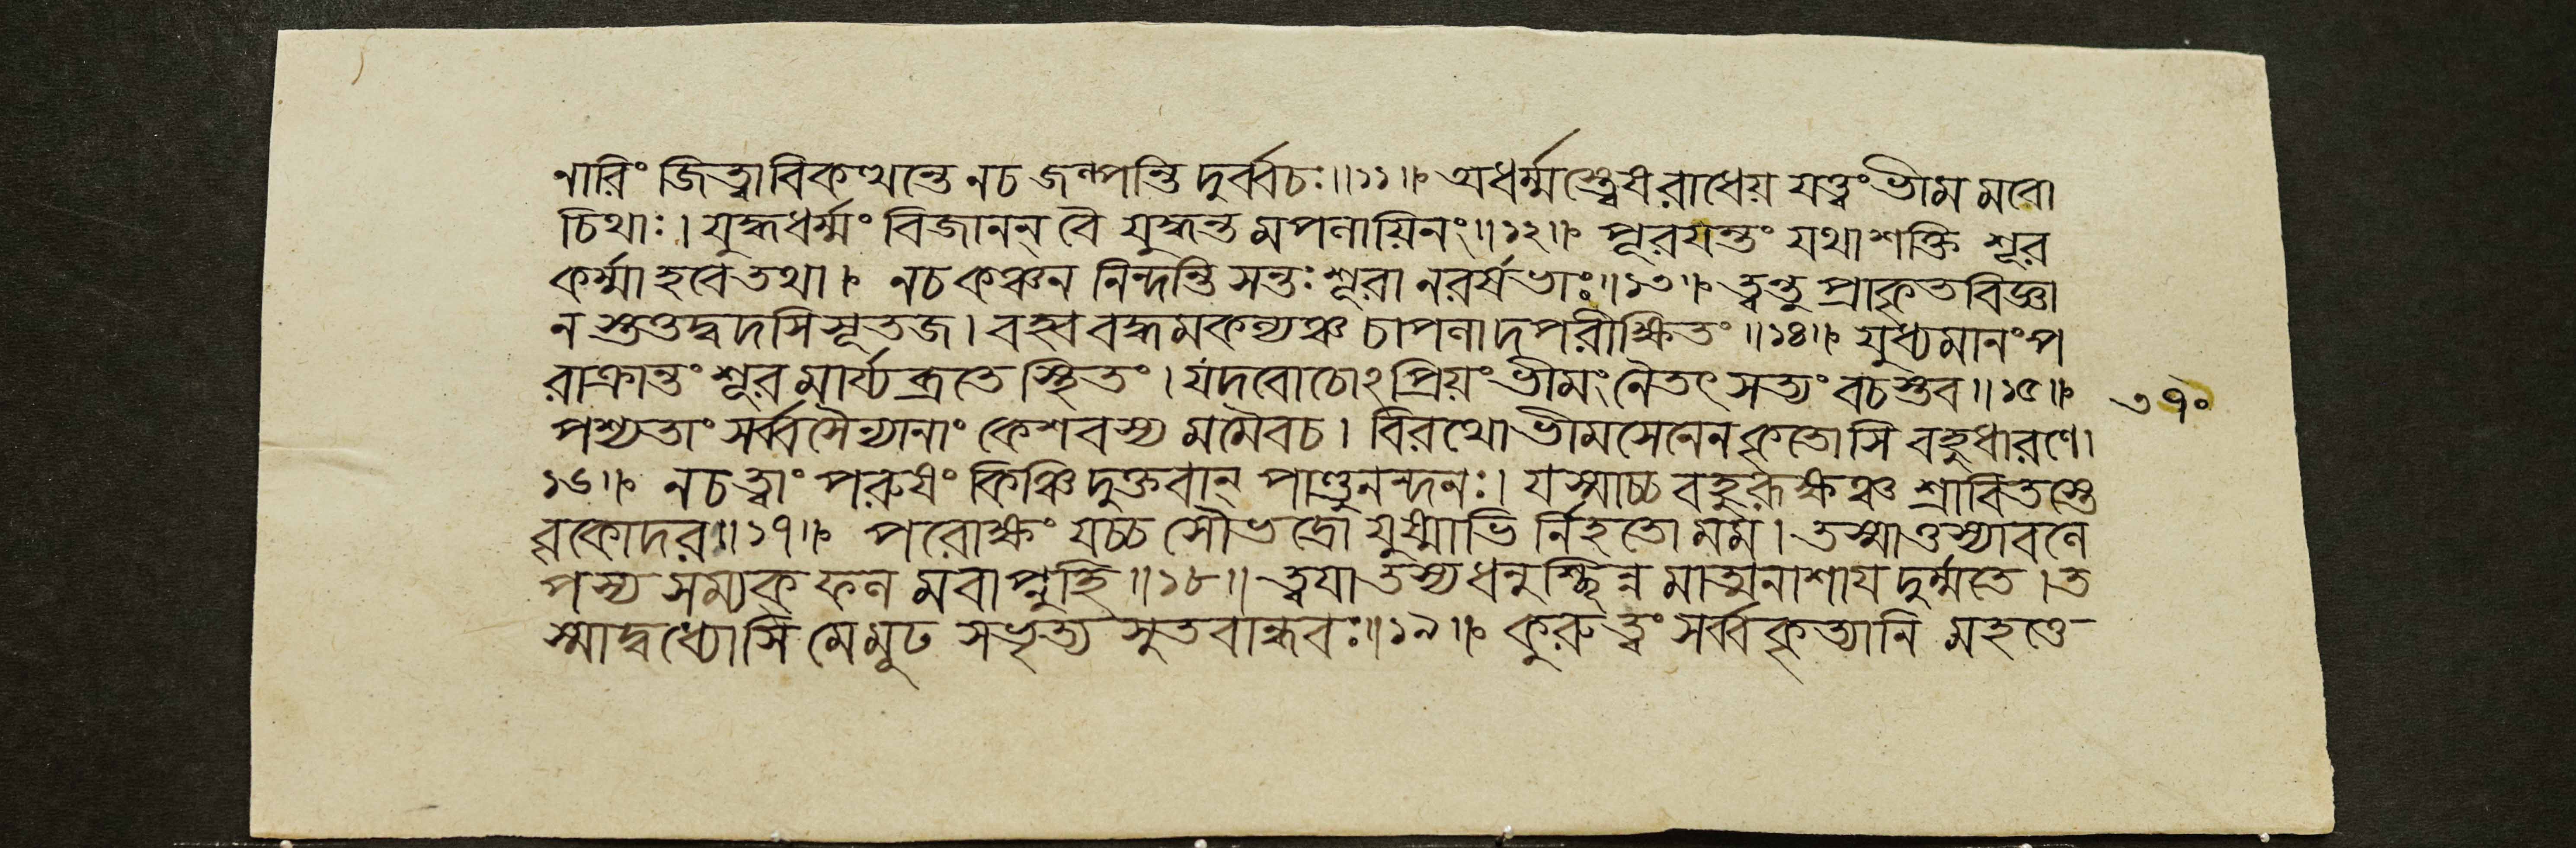 নারিং জিত্বাবিকত্থন্তে নচ জল্পন্তি দুর্ব্বচঃ॥১১॥ঃ অধর্ম্মস্ত্বেষরাধেয় যত্ত্বংভীম মবো
চিথাঃ। যুদ্ধধর্ম্মং বিজানন্ বৈ যুদ্ধন্ত মপলায়িনং॥১২॥ঃ পূরযন্তং যথাশক্তি শূর
কর্ম্মাহবেতথা।ঃ নচকঞ্চন নিন্দন্তি সন্তঃশূরা নরর্ষভাঃ॥১৩॥ঃ ত্বন্তু প্রাকৃতবিজ্ঞা
ন স্তত্তদ্বদসিসূতজ। বহ্ববদ্ধমকল্যঞ্চ চাপলাদপরীক্ষিতং॥১৪॥ঃ যুধ্যমানংপ
রাক্রান্তং শূরমার্য্যব্রতে স্থিতং। যদবোচোঽপ্রিয়ংভীমং নৈতৎসত্যং বচস্তব॥১৫॥ঃ ৩৭০
পশ্যতাং সর্ব্বসৈন্যানাং কেশবস্য মমৈবচ। বিরথোভীমসেনেনকৃতোসি বহুধারণে।
১৬॥ঃ নচত্বাং পরুষং কিঞ্চিদুক্তবান্ পাণ্ডুনন্দনঃ। যস্মাচ্চবহুরূক্ষঞ্চ শ্রাবিতস্তে
বৃকোদরঃ॥১৭॥ঃ পরোক্ষং যচ্চ সৌভদ্রো যুষ্মাভি র্নিহতো মম। তস্মাত্তস্যাবলে
পস্য সম্যক্ফল মবাপ্নুহি॥১৮॥ ত্বযাতস্যধনুশ্ছিন্ন মাত্মনাশায দুর্ম্মতে।ত
স্মাদ্বধ্যোসি মেমূঢ সভৃত্য সুতবান্ধবঃ॥১৯॥ঃ কুরুত্বং সর্ব্বকৃত্যানি মহত্তে